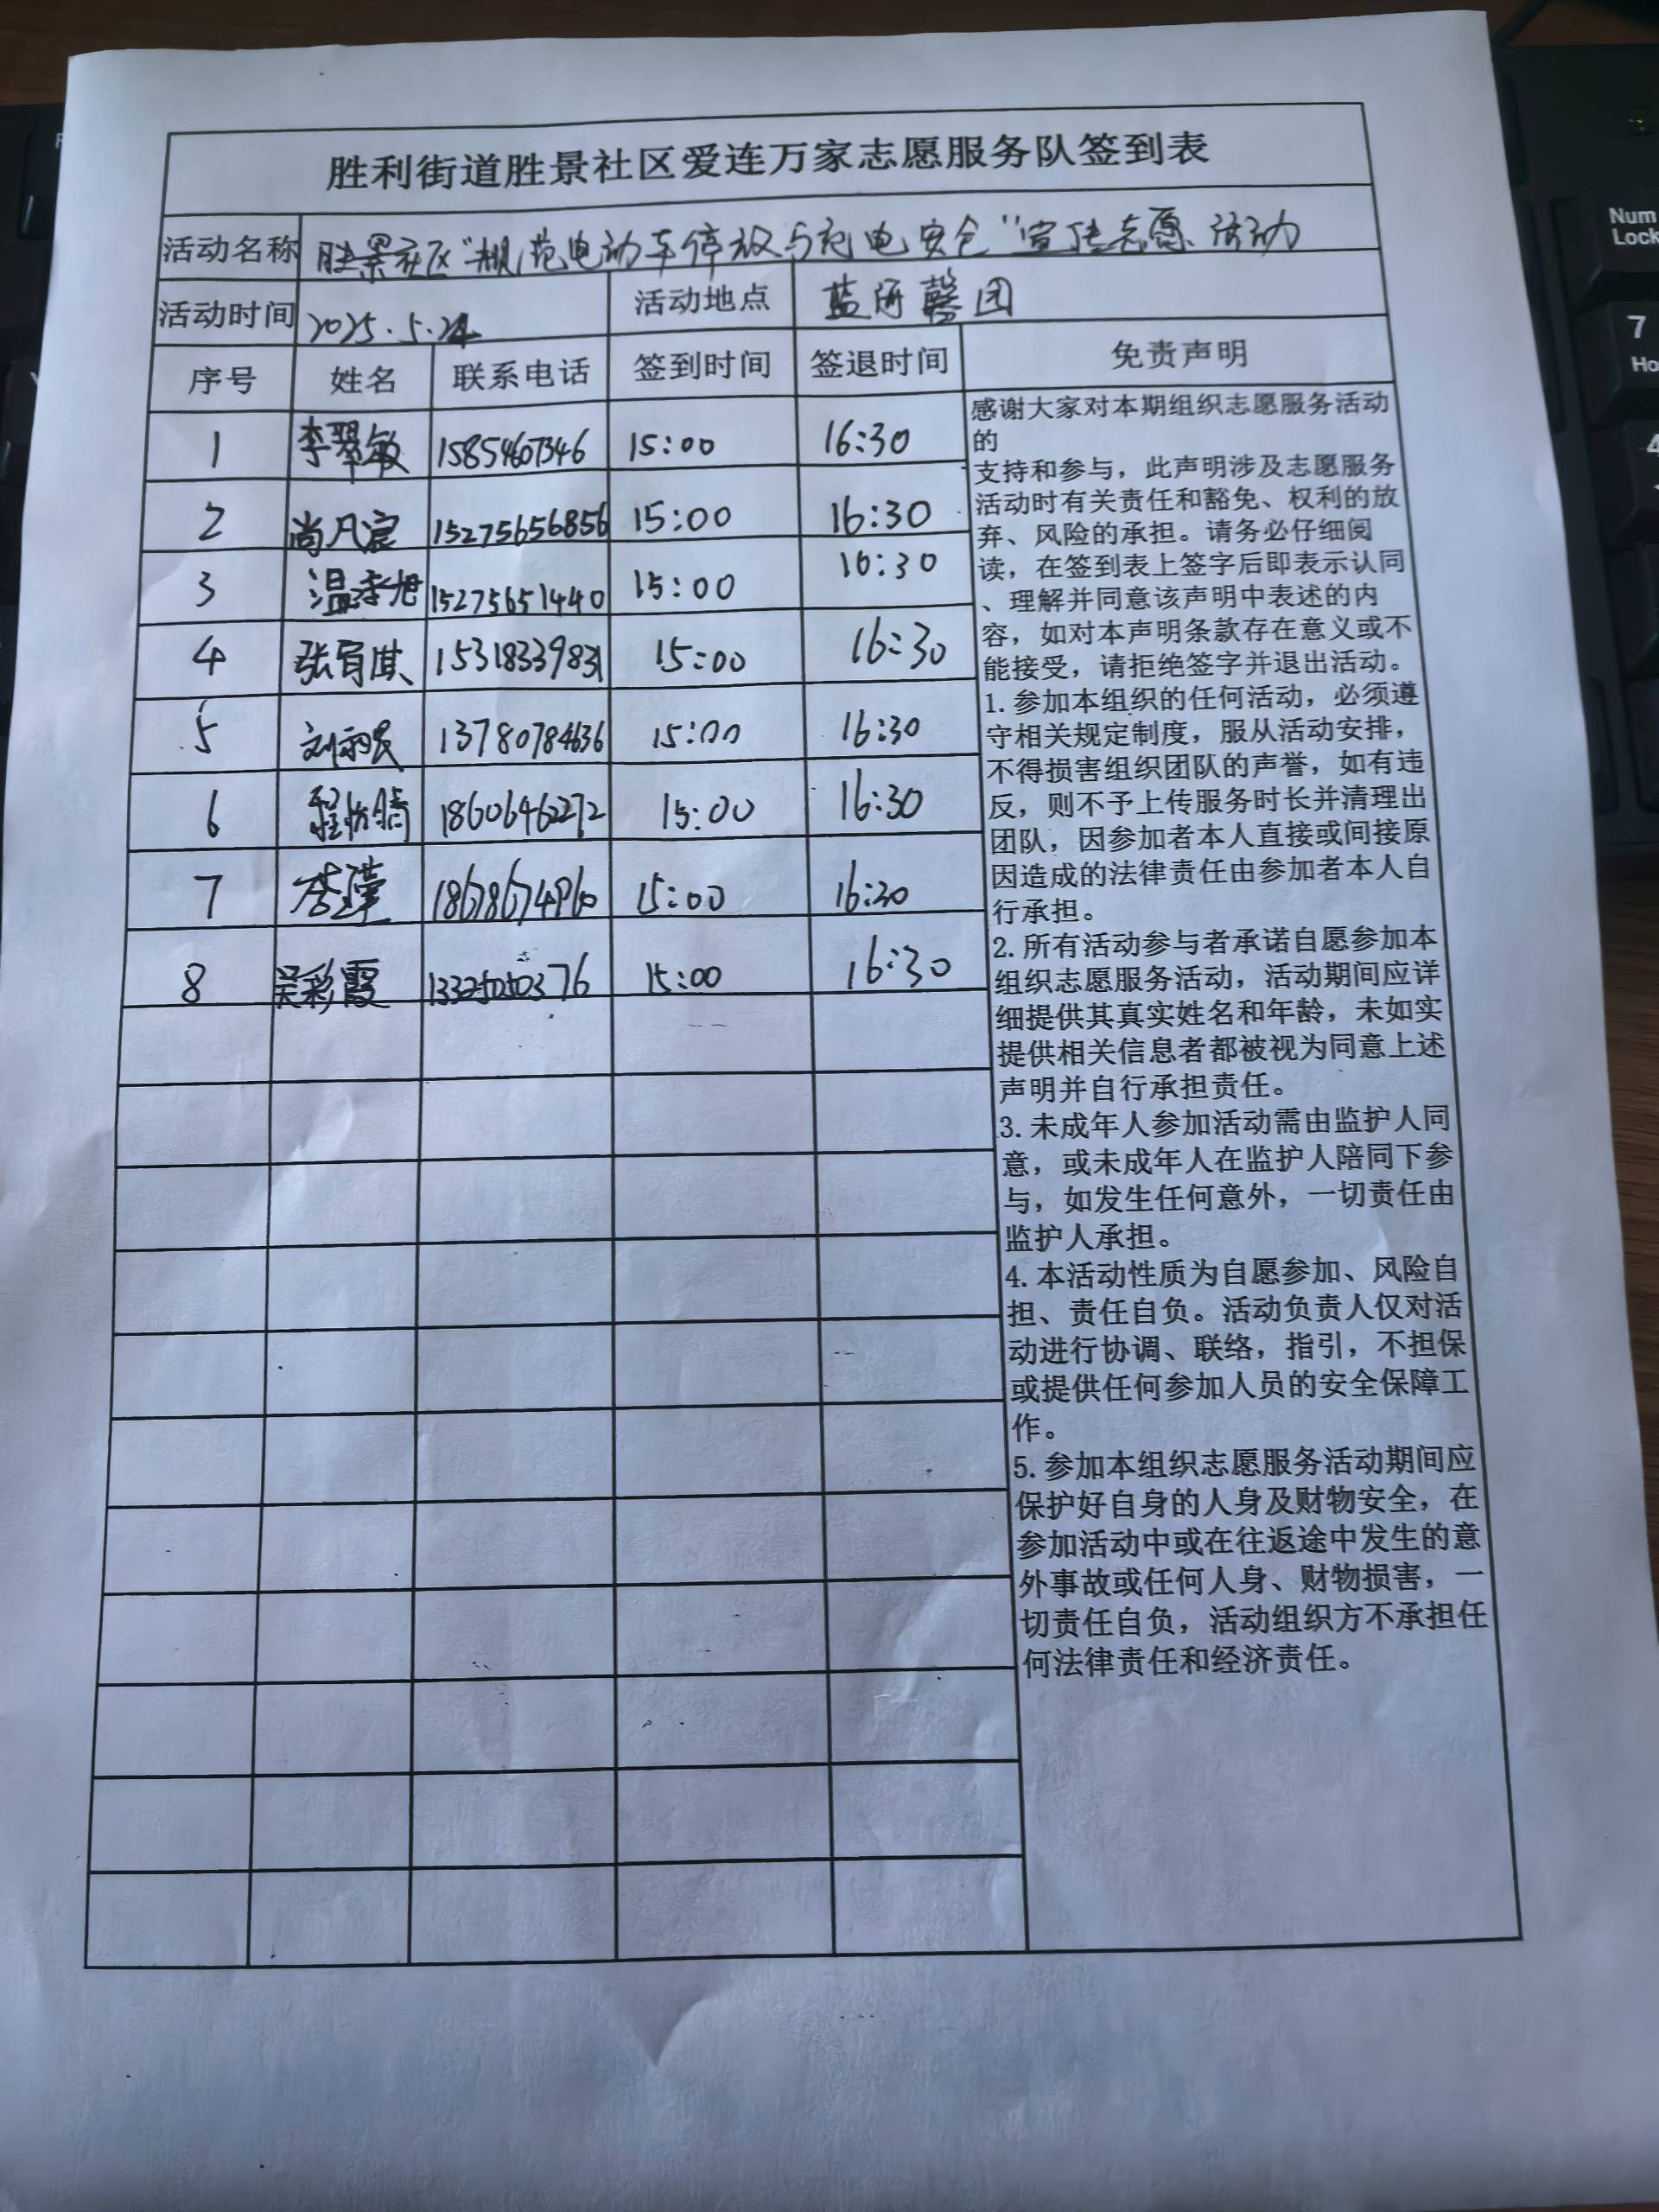 胜利街道胜景社区爱连万家志愿服务队签到表
活动名称 胜景社区"规范电动车停放与充电安全"宣传志愿活动
活动时间 2025.5.24 活动地点 蓝海馨园
序号 姓名 联系电话 签到时间 签退时间 免责声明
1 李翠敏 15854607346 15:00 16:30
2 尚凡宸 15275656856 15:00 16:30
3 温孝旭 15275651440 15:00 16:30
4 张育淇 15318339831 15:00 16:30
5 13780784636 15:00 16:30
6 18606462272 15:00 16:30
7 李瑾 18678674960 15:00 16:30
8 吴彩霞 13325050376 15:00 16:30
感谢大家对本期组织志愿服务活动
的
支持和参与，此声明涉及志愿服务
活动时有关责任和豁免、权利的放
弃、风险的承担。请务必仔细阅
读，在签到表上签字后即表示认同
、理解并同意该声明中表述的内
容，如对本声明条款存在意义或不
能接受，请拒绝签字并退出活动。
1.参加本组织的任何活动，必须遵
守相关规定制度，服从活动安排，
不得损害组织团队的声誉，如有违
反，则不予上传服务时长并清理出
团队，因参加者本人直接或间接原
因造成的法律责任由参加者本人自
行承担。
2.所有活动参与者承诺自愿参加本
组织志愿服务活动，活动期间应详
细提供其真实姓名和年龄，未如实
提供相关信息者都被视为同意上述
声明并自行承担责任。
3.未成年人参加活动需由监护人同
意，或未成年人在监护人陪同下参
与，如发生任何意外，一切责任由
监护人承担。
4.本活动性质为自愿参加、风险自
担、责任自负。活动负责人仅对活
动进行协调、联络，指引，不担保
或提供任何参加人员的安全保障工
作。
5.参加本组织志愿服务活动期间应
保护好自身的人身及财物安全，在
参加活动中或在往返途中发生的意
外事故或任何人身、财物损害，一
切责任自负，活动组织方不承担任
何法律责任和经济责任。
Num
Lock
7
Ho
4